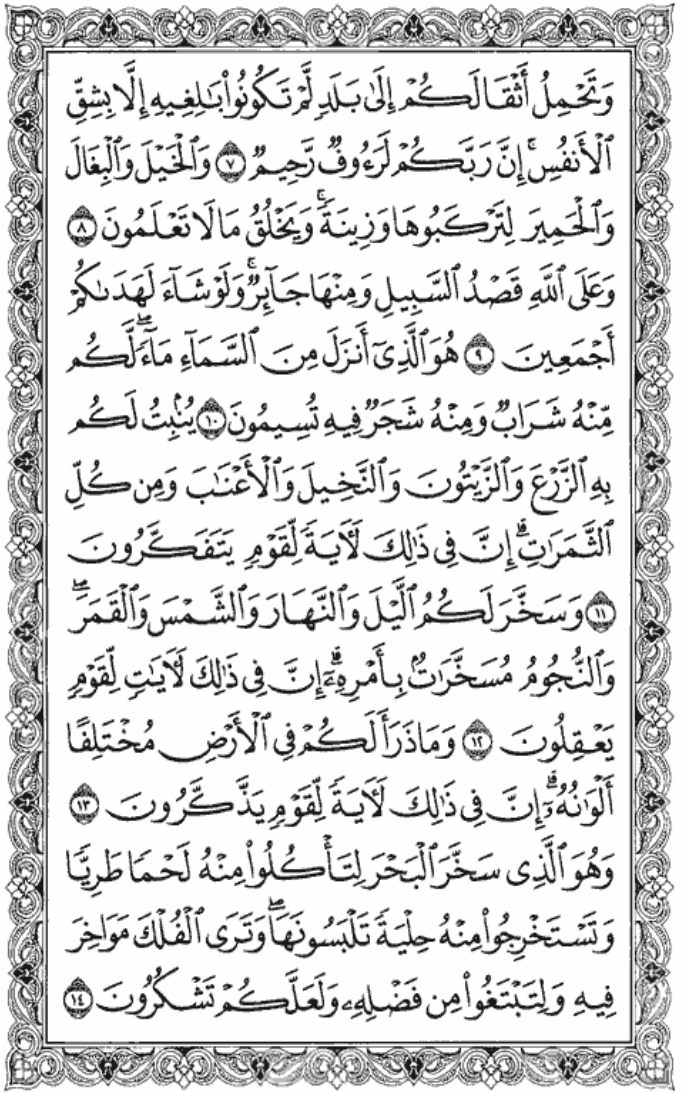 وَتَحْمِلُ أَثْقَالَكُمْ إِلَىٰ بَلَدٍ لَّمْ تَكُونُوا۟ بَٰلِغِيهِ إِلَّا بِشِقِّ
ٱلْأَنفُسِ ۚ إِنَّ رَبَّكُمْ لَرَءُوفٌ رَّحِيمٌ ٧ وَٱلْخَيْلَ وَٱلْبِغَالَ
وَٱلْحَمِيرَ لِتَرْكَبُوهَا وَزِينَةً ۚ وَيَخْلُقُ مَا لَا تَعْلَمُونَ ٨
وَعَلَى ٱللَّهِ قَصْدُ ٱلسَّبِيلِ وَمِنْهَا جَآئِرٌ ۚ وَلَوْ شَآءَ لَهَدَىٰكُمْ
أَجْمَعِينَ ٩ هُوَ ٱلَّذِىٓ أَنزَلَ مِنَ ٱلسَّمَآءِ مَآءً ۖ لَّكُم
مِّنْهُ شَرَابٌ وَمِنْهُ شَجَرٌ فِيهِ تُسِيمُونَ ١٠ يُنۢبِتُ لَكُم
بِهِ ٱلزَّرْعَ وَٱلزَّيْتُونَ وَٱلنَّخِيلَ وَٱلْأَعْنَٰبَ وَمِن كُلِّ
ٱلثَّمَرَٰتِ ۗ إِنَّ فِى ذَٰلِكَ لَءَايَةً لِّقَوْمٍ يَتَفَكَّرُونَ
١١ وَسَخَّرَ لَكُمُ ٱلَّيْلَ وَٱلنَّهَارَ وَٱلشَّمْسَ وَٱلْقَمَرَ ۖ
وَٱلنُّجُومُ مُسَخَّرَٰتٌۢ بِأَمْرِهِۦٓ ۗ إِنَّ فِى ذَٰلِكَ لَءَايَٰتٍ لِّقَوْمٍ
يَعْقِلُونَ ١٢ وَمَا ذَرَأَ لَكُمْ فِى ٱلْأَرْضِ مُخْتَلِفًا
أَلْوَٰنُهُۥٓ ۗ إِنَّ فِى ذَٰلِكَ لَءَايَةً لِّقَوْمٍ يَذَّكَّرُونَ ١٣
وَهُوَ ٱلَّذِى سَخَّرَ ٱلْبَحْرَ لِتَأْكُلُوا۟ مِنْهُ لَحْمًا طَرِيًّا
وَتَسْتَخْرِجُوا۟ مِنْهُ حِلْيَةً تَلْبَسُونَهَا ۖ وَتَرَى ٱلْفُلْكَ مَوَاخِرَ
فِيهِ وَلِتَبْتَغُوا۟ مِن فَضْلِهِۦ وَلَعَلَّكُمْ تَشْكُرُونَ ١٤